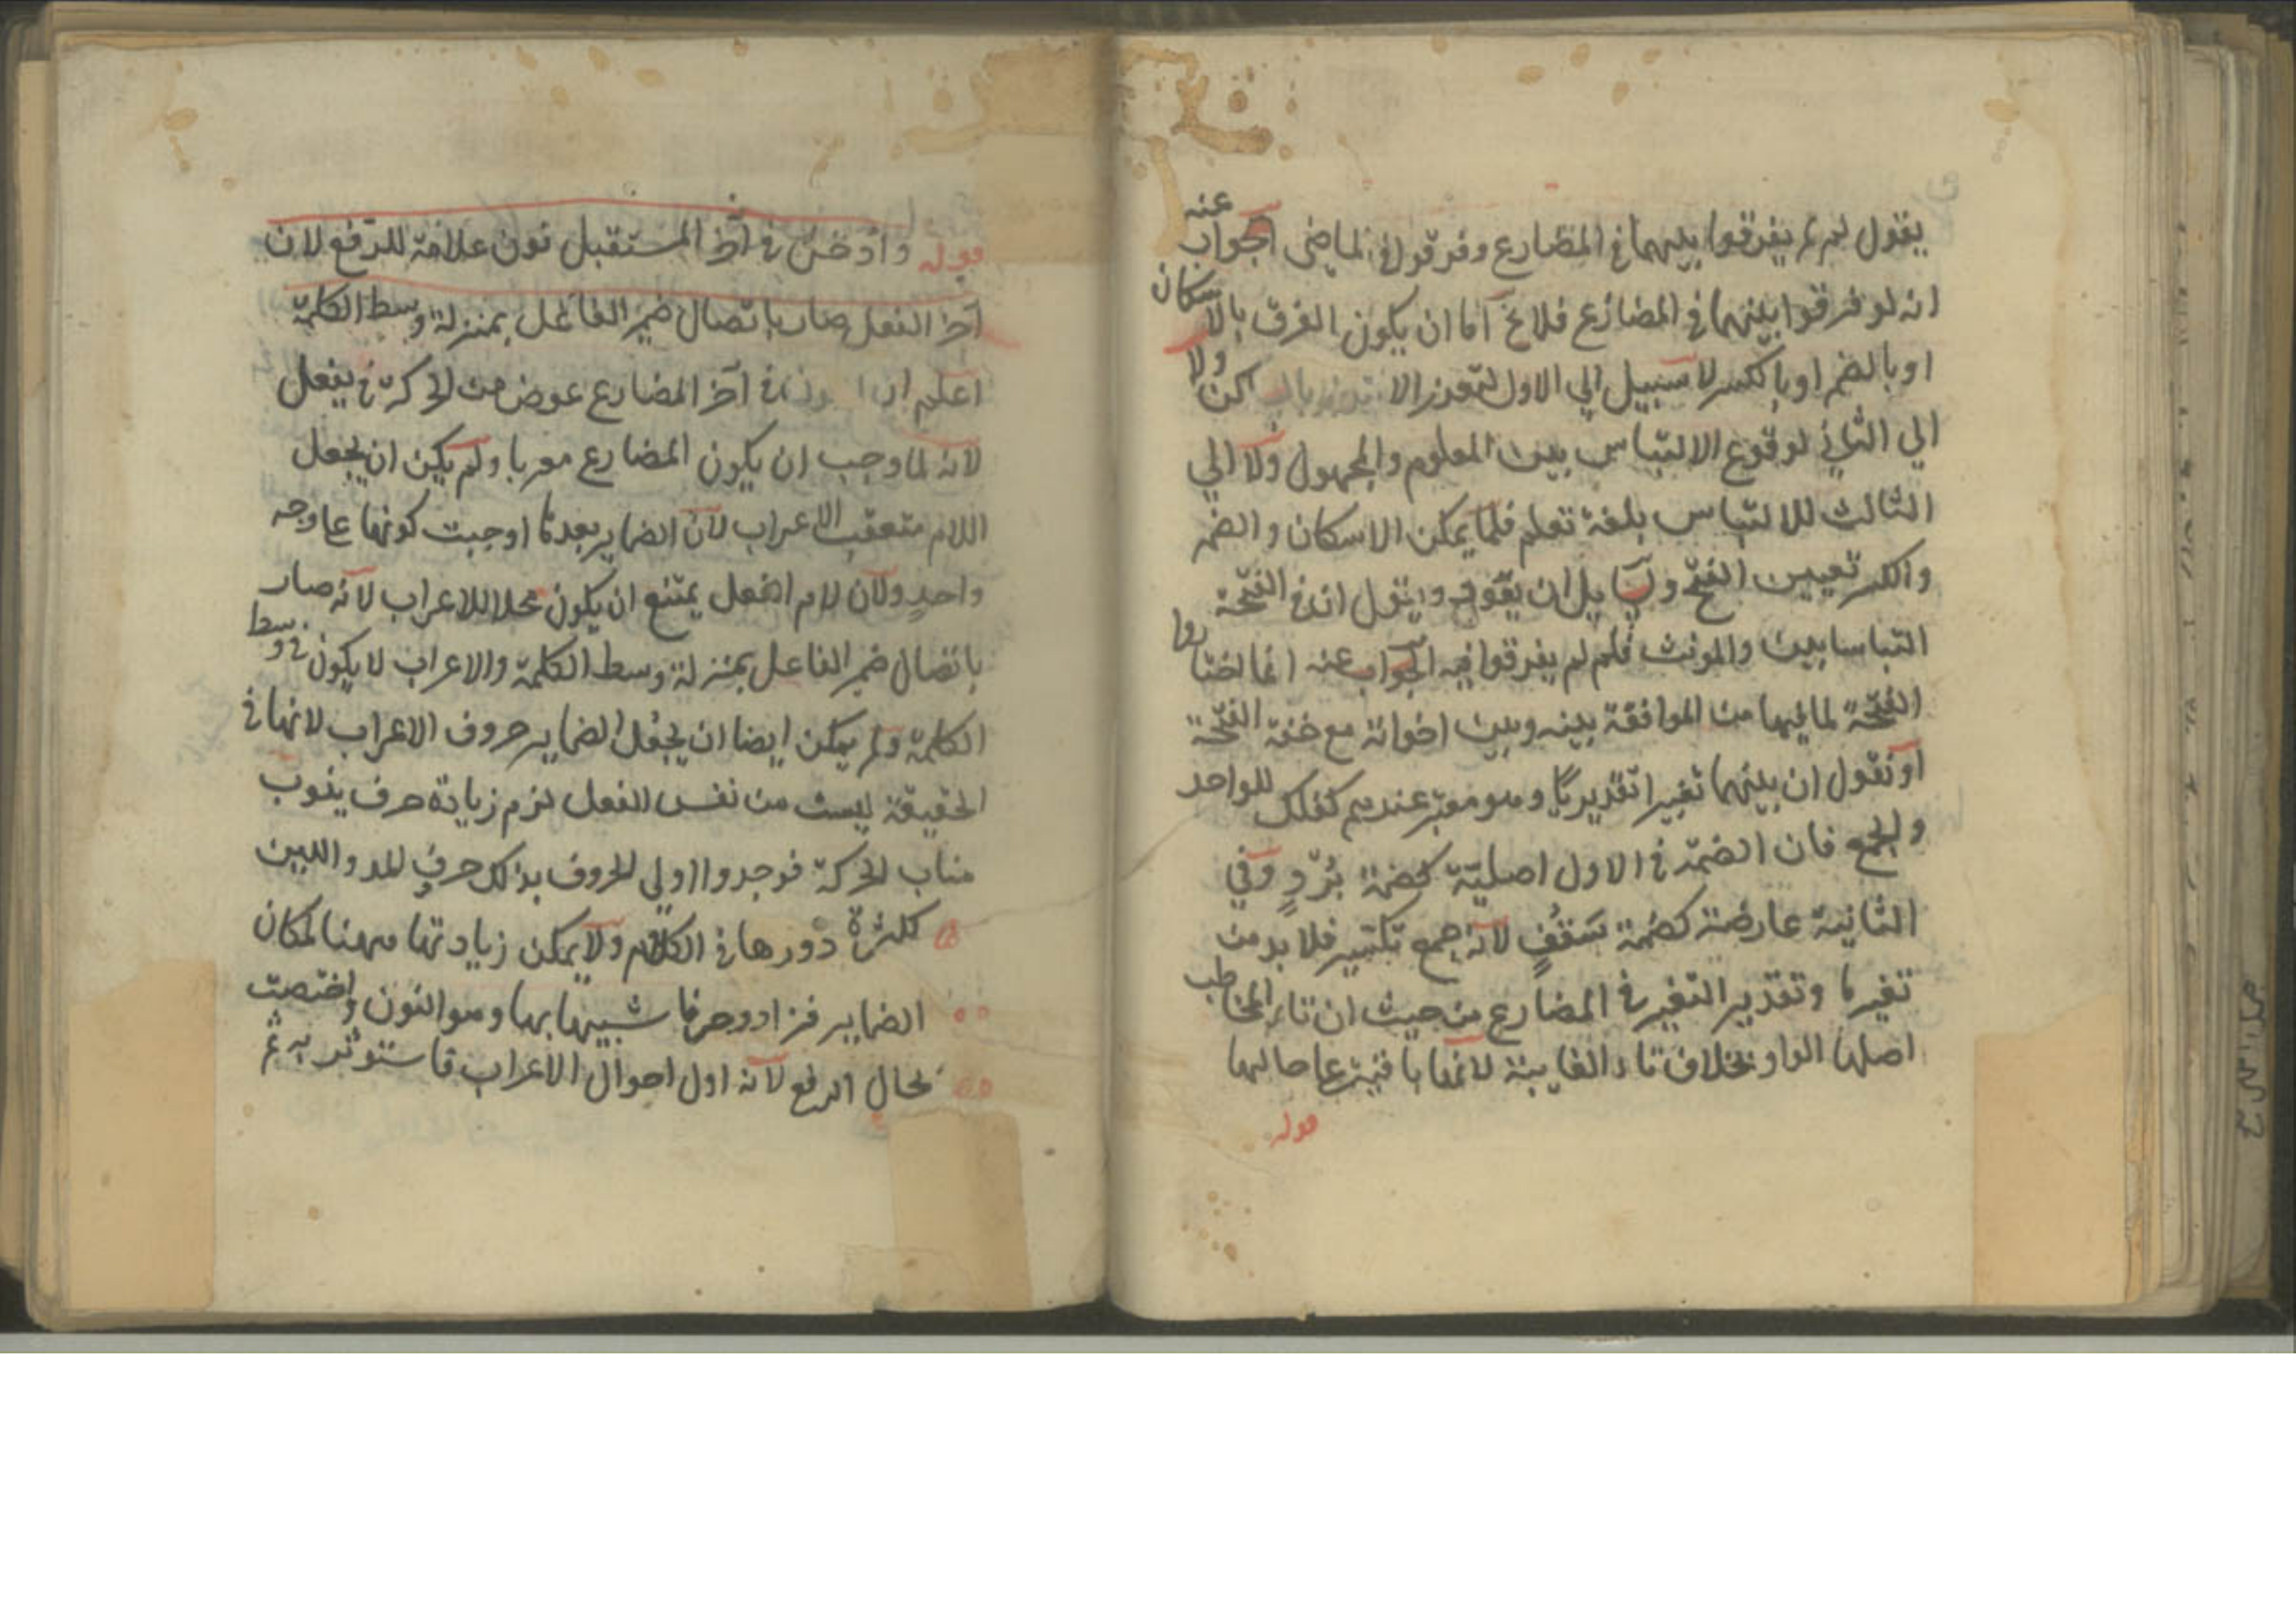 يقول لم لم يفرقوا بينهما في المضارع وفرقوا في الماضي الجواب عنه
انه لو فرقوا بينهما في المضارع فلا يخ اما ان يكون الفرق بالاسكان
او بالضم او بالكسر لا سبيل الي الاول لتعذر الابتداء بالساكن ولا
الي الثاني لوقوع الالتباس بين المعلوم والمجهول ولا الي
الثالث للالتباس بلغة تعلم فلما يمكن الاسكان والضم
والكسر تعيين الفتح ولسايل ان يقول ان في الفتحة
التباسا بين والمونث فلم لم يفرقوا فيه الجواب عنه انما اختاروا
الفتحة لما فيها من الموافقة بينه وبين اخواته مع خفة الفتحة
او نقول ان بينهما تغييرا تقديريا وهو معتبر عندهم كفلك للواحد
والجمع فان الضمة في الاول اصلية كضمة بُرْدٍ وفي
الثانية عارضة كضمة سَقُفٍ لانه جمع تكسير فلا بد من
تغير ما وتقدير التغير في المضارع من حيث ان تاء المخاطب
اصلها الواو بخلاف تاء الغايبة لانها باقية عا حالها
قوله
قوله وادخل في آخر المستقبل نون علامة للرفع لان
آخر الفعل صار باتصال ضمير الفاعل بمنزلة وسط الكلمة
اعلم ان في آخر المضارع عوض من الحركة في يفعل
لانه لما وجب ان يكون المضارع معربا ولم يكن ان يجعل
اللام متعقب الاعراب لان الضماير بعدها اوجبت كونها عا وجه
واحد ولان لام الفعل يمتنع ان يكون محلا للاعراب لانه صار
باتصال ضمير الفاعل بمنزلة وسط الكلمة والاعراب لا يكون في وسط
الكلمة ولم يمكن ايضا ان يجعل الضماير حروف الاعراب لانها في
الحقيقة ليست من نفس الفعل لزم زيادة حرف ينوب
مناب الحركة فوجدوا اولي الحروف بذلك حرف المد واللين
لكثرة دورها في الكلام ولا يمكن زيادتها ههنا لمكان
الضماير فزادوا حرفا شبيها بها وهو النون واختصت
بحال الرفع لانه اول احوال الاعراب فاستوثر به ثم